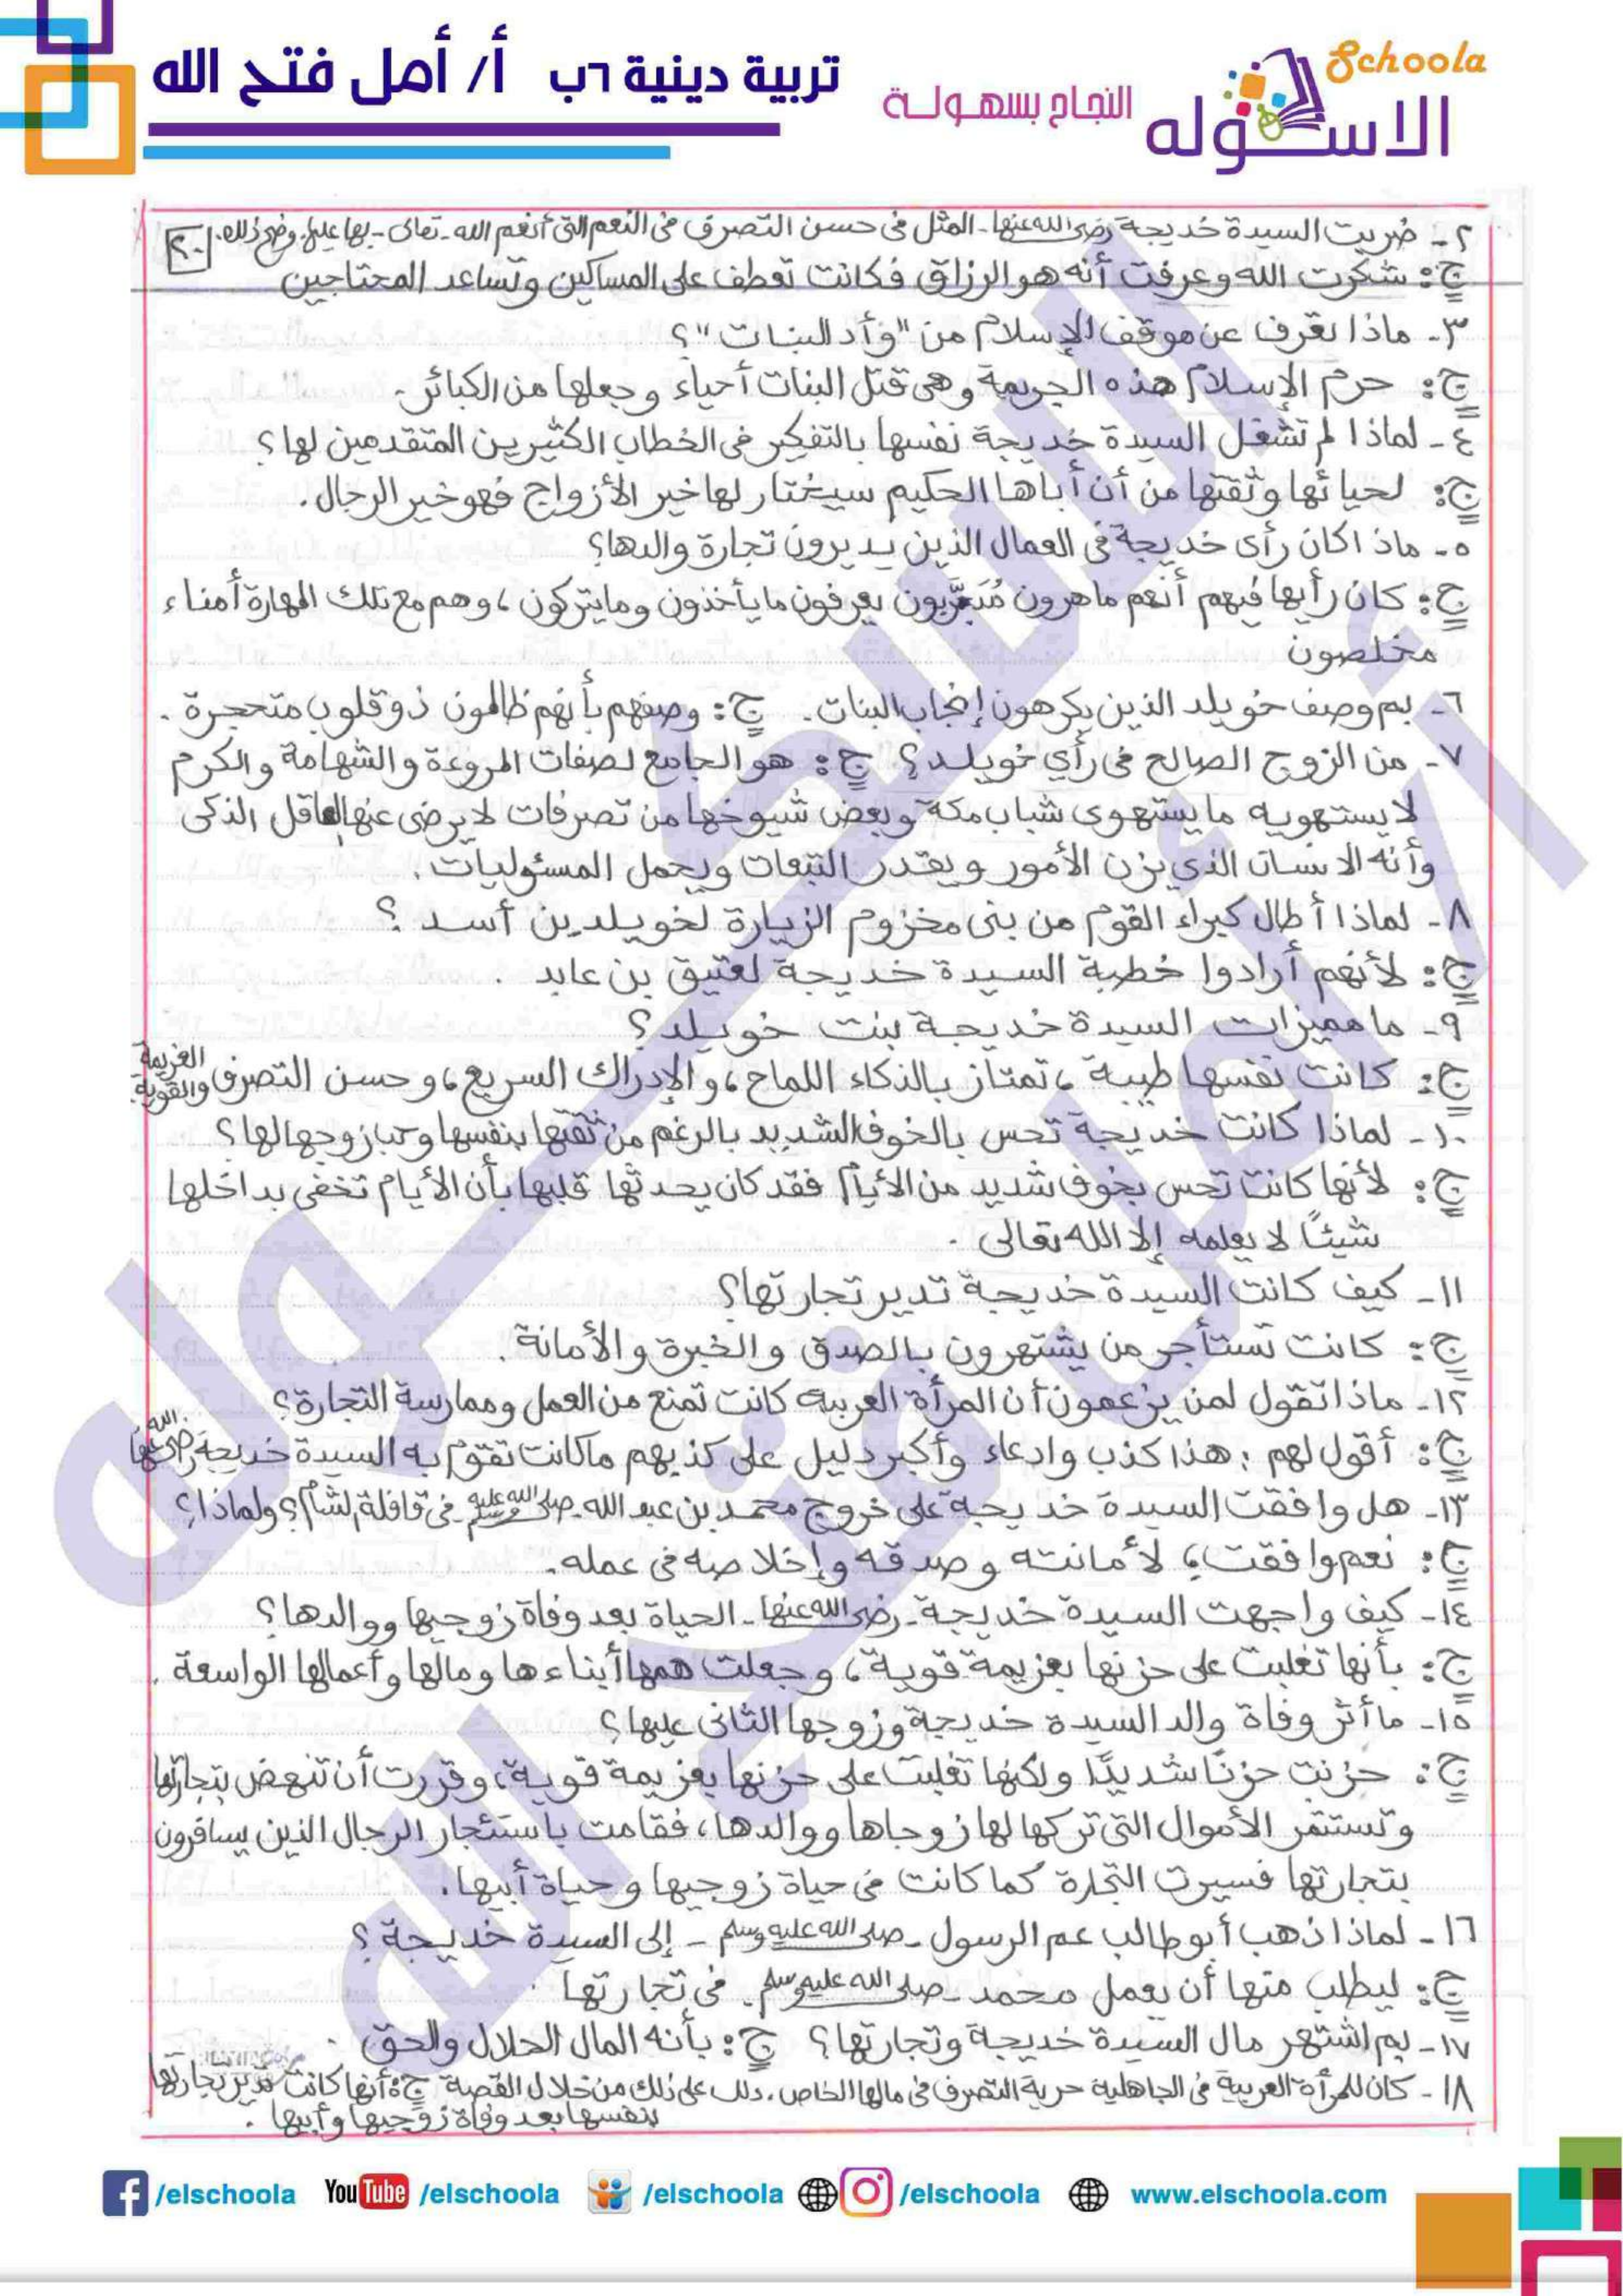 تربية دينية ٦ب أ/ أمل فتح الله
النجاح بسهولة
Schoola
الاسكوله
٢- ضربت السيدة خديجة رضى الله عنها - المثل فى حسن التصرف فى النعم التى أنعم الله - تعالى - بها عليها. وضح ذلك. ٢٠
ج: شكرت الله وعرفت أنه هو الرزاق فكانت تعطف على المساكين وتساعد المحتاجين
٣- ماذا تعرف عن موقف الإسلام من "وأد البنات"؟
ج: حرم الإسلام هذه الجريمة وهى قتل البنات أحياء وجعلها من الكبائر.
٤- لماذا لم تشغل السيدة خديجة نفسها بالتفكير فى الخطاب الكثيرين المتقدمين لها؟
ج: لحيائها وثقتها من أن أباها الحكيم سيختار لها خير الأزواج فهو خير الرجال.
٥- ماذا كان رأى خديجة فى العمال الذين يديرون تجارة والدها؟
ج: كان رأيها فيهم أنهم ماهرون مُدَرَّبون يعرفون ما يأخذون وما يتركون، وهم مع تلك المهارة أمناء
مخلصون
٦- بم وصف خويلد الذين يكرهون إنجاب البنات. ج: وصفهم بأنهم ظالمون ذو قلوب متحجرة.
٧- من الزوج الصالح فى رأي خويلد؟ ج: هو الجامع لصفات المروءة والشهامة والكرم
لا يستهويه ما يستهوى شباب مكة وبعض شيوخها من تصرفات لا يرضى عنها العاقل الذكى
وأنه الانسان الذي يزن الأمور ويقدر التبعات ويحمل المسئوليات.
٨- لماذا أطال كبراء القوم من بنى مخزوم الزيارة لخويلد بن أسد ؟
ج: لأنهم أرادوا خطبة السيدة خديجة لعتيق بن عابد .
٩- ما مميزات السيدة خديجة بنت خويلد؟
ج: كانت نفسها طيبة، تمتاز بالذكاء اللماح، والإدراك السريع، وحسن التصرف والعزيمة القوية.
١٠- لماذا كانت خديجة تحس بالخوف الشديد بالرغم من ثقتها بنفسها وحب زوجها لها؟
ج: لأنها كانت تحس بخوف شديد من الأيام فقد كان يحدثها قلبها بأن الأيام تخفى بداخلها
شيئًا لا يعلمه إلا الله تعالى .
١١- كيف كانت السيدة خديجة تدير تجارتها؟
ج: كانت تستأجر من يشتهرون بالصدق والخبرة والأمانة.
١٢- ماذا تقول لمن يزعمون أن المرأة العربية كانت تمنع من العمل وممارسة التجارة؟
ج: أقول لهم: هذا كذب وادعاء وأكبر دليل على كذبهم ما كانت تقوم به السيدة خديجة رضى الله عنها
١٣- هل وافقت السيدة خديجة على خروج محمد بن عبد الله - صلى الله عليه وسلم - فى قافلة الشام؟ ولماذا؟
ج: نعم وافقت؛ لأمانته وصدقه وإخلاصه فى عمله.
١٤- كيف واجهت السيدة خديجة - رضى الله عنها - الحياة بعد وفاة زوجيها ووالدها؟
ج: بأنها تغلبت على حزنها بعزيمة قوية، وجعلت همها أبناءها ومالها وأعمالها الواسعة.
١٥- ما أثر وفاة والد السيدة خديجة وزوجها الثانى عليها؟
ج: حزنت حزنًا شديدًا ولكنها تغلبت على حزنها بعزيمة قوية، وقررت أن تنهض بتجارتها
وتستثمر الأموال التى تركها لها زوجاها ووالدها، فقامت باستئجار الرجال الذين يسافرون
بتجارتها فسيرت التجارة كما كانت فى حياة زوجيها وحياة أبيها.
١٦- لماذا ذهب أبو طالب عم الرسول - صلى الله عليه وسلم - إلى السيدة خديجة؟
ج: ليطلب منها أن يعمل محمد - صلى الله عليه وسلم - فى تجارتها .
١٧- بم اشتهر مال السيدة خديجة وتجارتها؟ ج: بأنه المال الحلال والحق .
١٨- كان للمرأة العربية فى الجاهلية حرية التصرف فى مالها الخاص. دلل على ذلك من خلال القصة ج: أنها كانت تدير تجارتها
بنفسها بعد وفاة زوجيها وأبيها .
الاسكوله
أ/ أمل فتح الله
/elschoola YouTube /elschoola /elschoola /elschoola www.elschoola.com